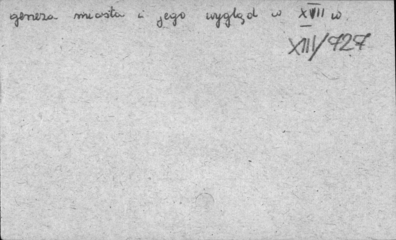 geneza miasta i jego wygląd w XVII w.
XIII/727